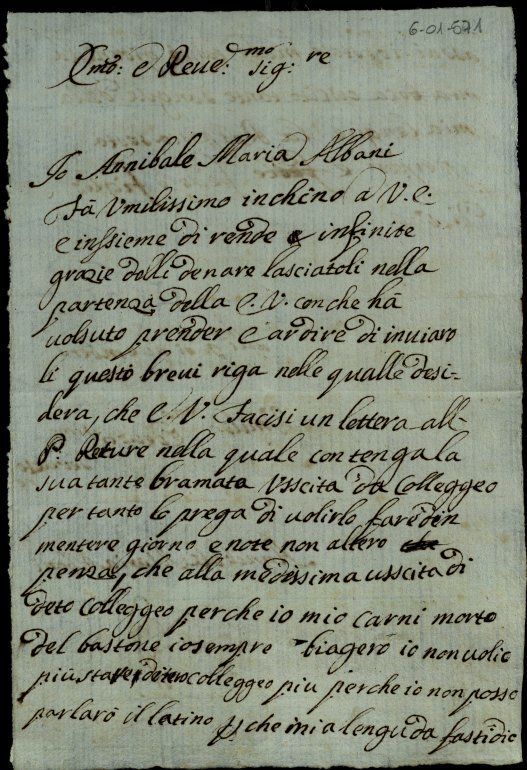 6-01-571
Emo: e Reue:mo sig:re
Io Annibale Maria Albani
Fà Vmilissimo inchino à V. e.
e inssieme di rende e infinite
grazie dalli denare lasciatoli nella
partenza della E. V. con che hà
uolsuto prender l'ardire di inuiaro
li questo breui riga nelle qualle desi-
dera, che E. V. Facisi un lettera all-
P. Reture nella quale contenga la
sua tante bramata Vsscita da Colleggeo
per tanto lo prega di uolirlo fare
mentere giorno e note non altero
penza, che alla medessima usscita di
deto Colleggeo perche io mio carni morto
del bastone io sempre biagerò io non uolio
più stare colleggeo piu perche io non posso
parlarò il latino che mia lengu da fastidio